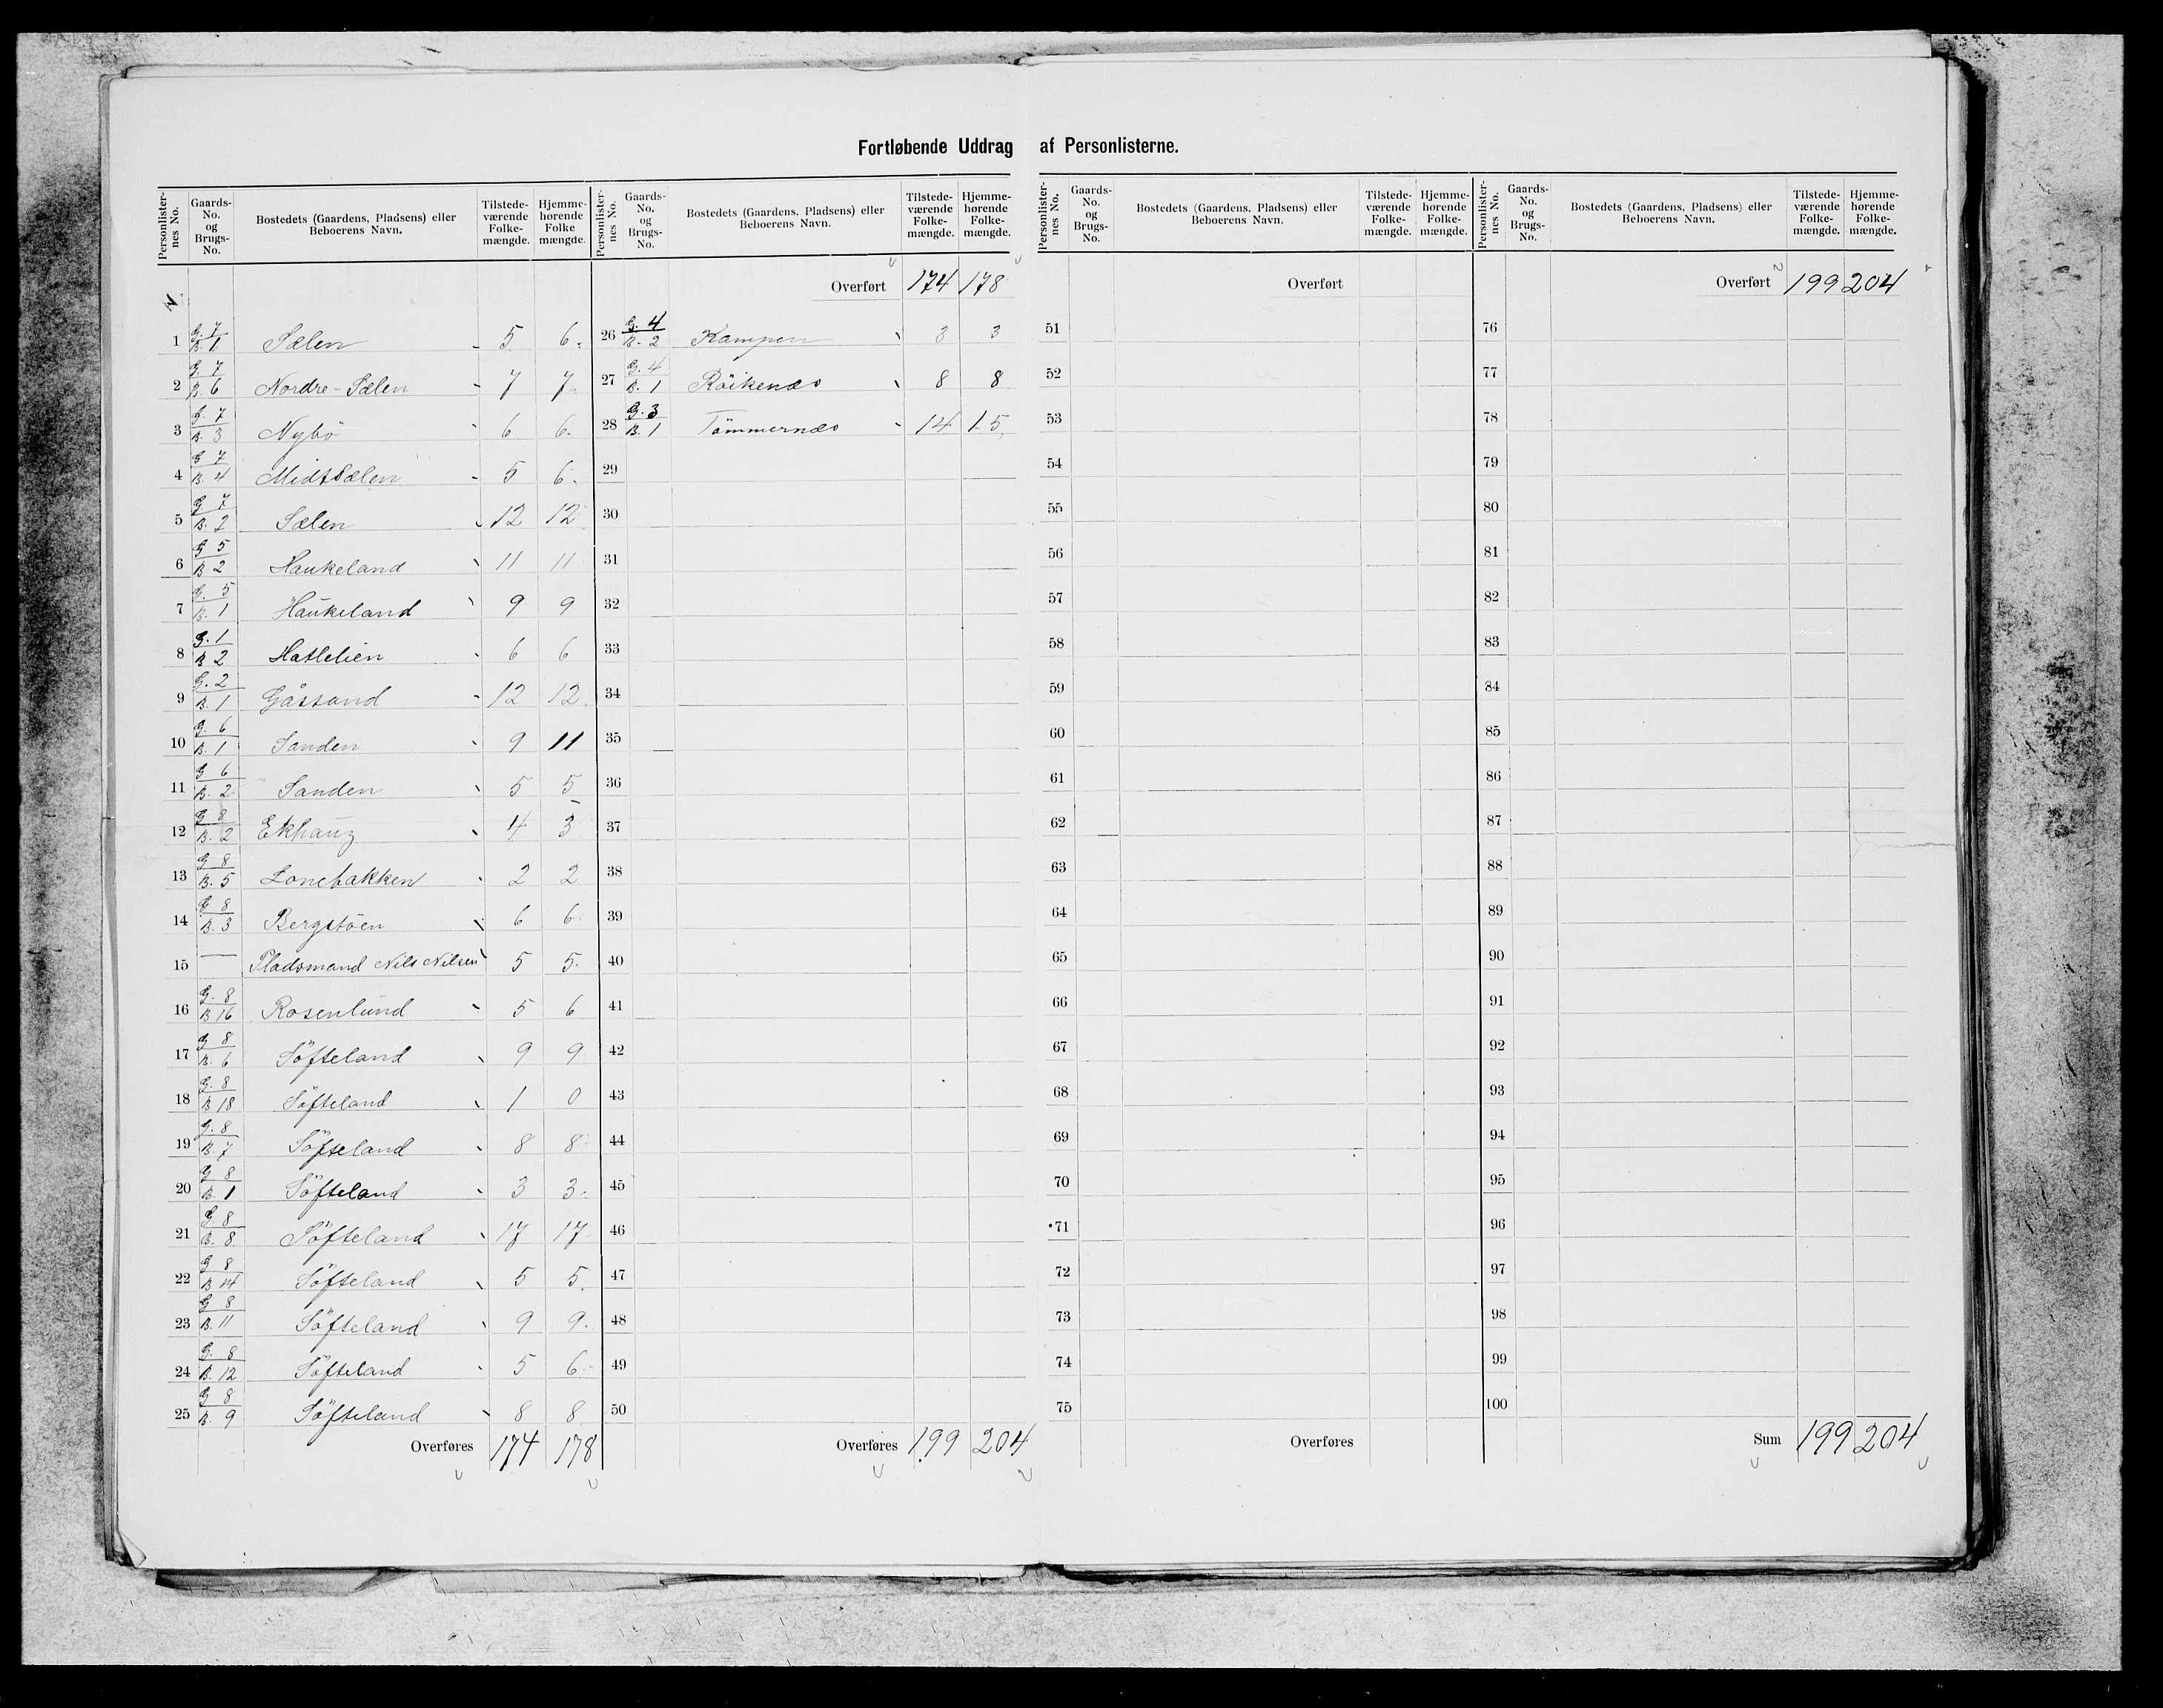 Fortløbende Uddrag af Personlisterne.
Personlister-nes No. | Gaards-No. og Brugs-No. | Bostedets (Gaardens, Pladsens) eller Beboerens Navn. | Tilstede-værende Folke-mængde. | Hjemme-hørende Folke mængde.
1 G. 7 B. 1 Sælen 5 6
2 G. 7 B. 6 Nordre-Sælen 7 7
3 G. 7 B. 3 Nybö 6 6
4 G. 7 B. 4 Midtsælen 5 6
5 G. 7 B. 2 Sælen 12 12
6 G. 5 B. 2 Haukeland 11 11
7 G. 5 B. 1 Haukeland 9 9
8 G. 1 B. 2 Hatlelien 6 6
9 G. 2 B. 1 Gåssand 12 12
10 G. 6 B. 1 Sanden 9 11
11 G. 6 B. 2 Sanden 5 5
12 G. 8 B. 2 Ekhaug 4 3
13 G. 8 B. 5 Lonebakken 2 2
14 G. 8 B. 3 Bergstöen 6 6
15 — Pladsmand Nils Nilsen 5 5
16 G. 8 B. 16 Rosenlund 5 6
17 G. 8 B. 6 Söfteland 9 9
18 G. 8 B. 18 Söfteland 1 0
19 G. 8 B. 7 Söfteland 8 8
20 G. 8 B. 1 Söfteland 3 3
21 G. 8 B. 8 Söfteland 17 17
22 G. 8 B. 14 Söfteland 5 5
23 G. 8 B. 11 Söfteland 9 9
24 G. 8 B. 12 Söfteland 5 6
25 G. 8 B. 9 Söfteland 8 8
Overføres 174 178
Personlister-nes No. | Gaards-No. og Brugs-No. | Bostedets (Gaardens, Pladsens) eller Beboerens Navn. | Tilstede-værende Folke-mængde. | Hjemme-hørende Folke-mængde.
Overført 174 178
26 G. 4 B. 2 Kampen 3 3
27 G. 4 B. 1 Röikenæs 8 8
28 G. 3 B. 1 Tömmernæs 14 15
29
30
31
32
33
34
35
36
37
38
39
40
41
42
43
44
45
46
47
48
49
50
Overføres 199 204
Personlister-nes No. | Gaards-No. og Brugs-No. | Bostedets (Gaardens, Pladsens) eller Beboerens Navn. | Tilstede-værende Folke-mængde. | Hjemme-hørende Folke-mængde.
Overført
51
52
53
54
55
56
57
58
59
60
61
62
63
64
65
66
67
68
69
70
71
72
73
74
75
Overføres
Personlister-nes No. | Gaards-No. og Brugs-No. | Bostedets (Gaardens, Pladsens) eller Beboerens Navn. | Tilstede-værende Folke-mængde. | Hjemme-hørende Folke-mængde.
Overført 199 204
76
77
78
79
80
81
82
83
84
85
86
87
88
89
90
91
92
93
94
95
96
97
98
99
100
Sum 199 204